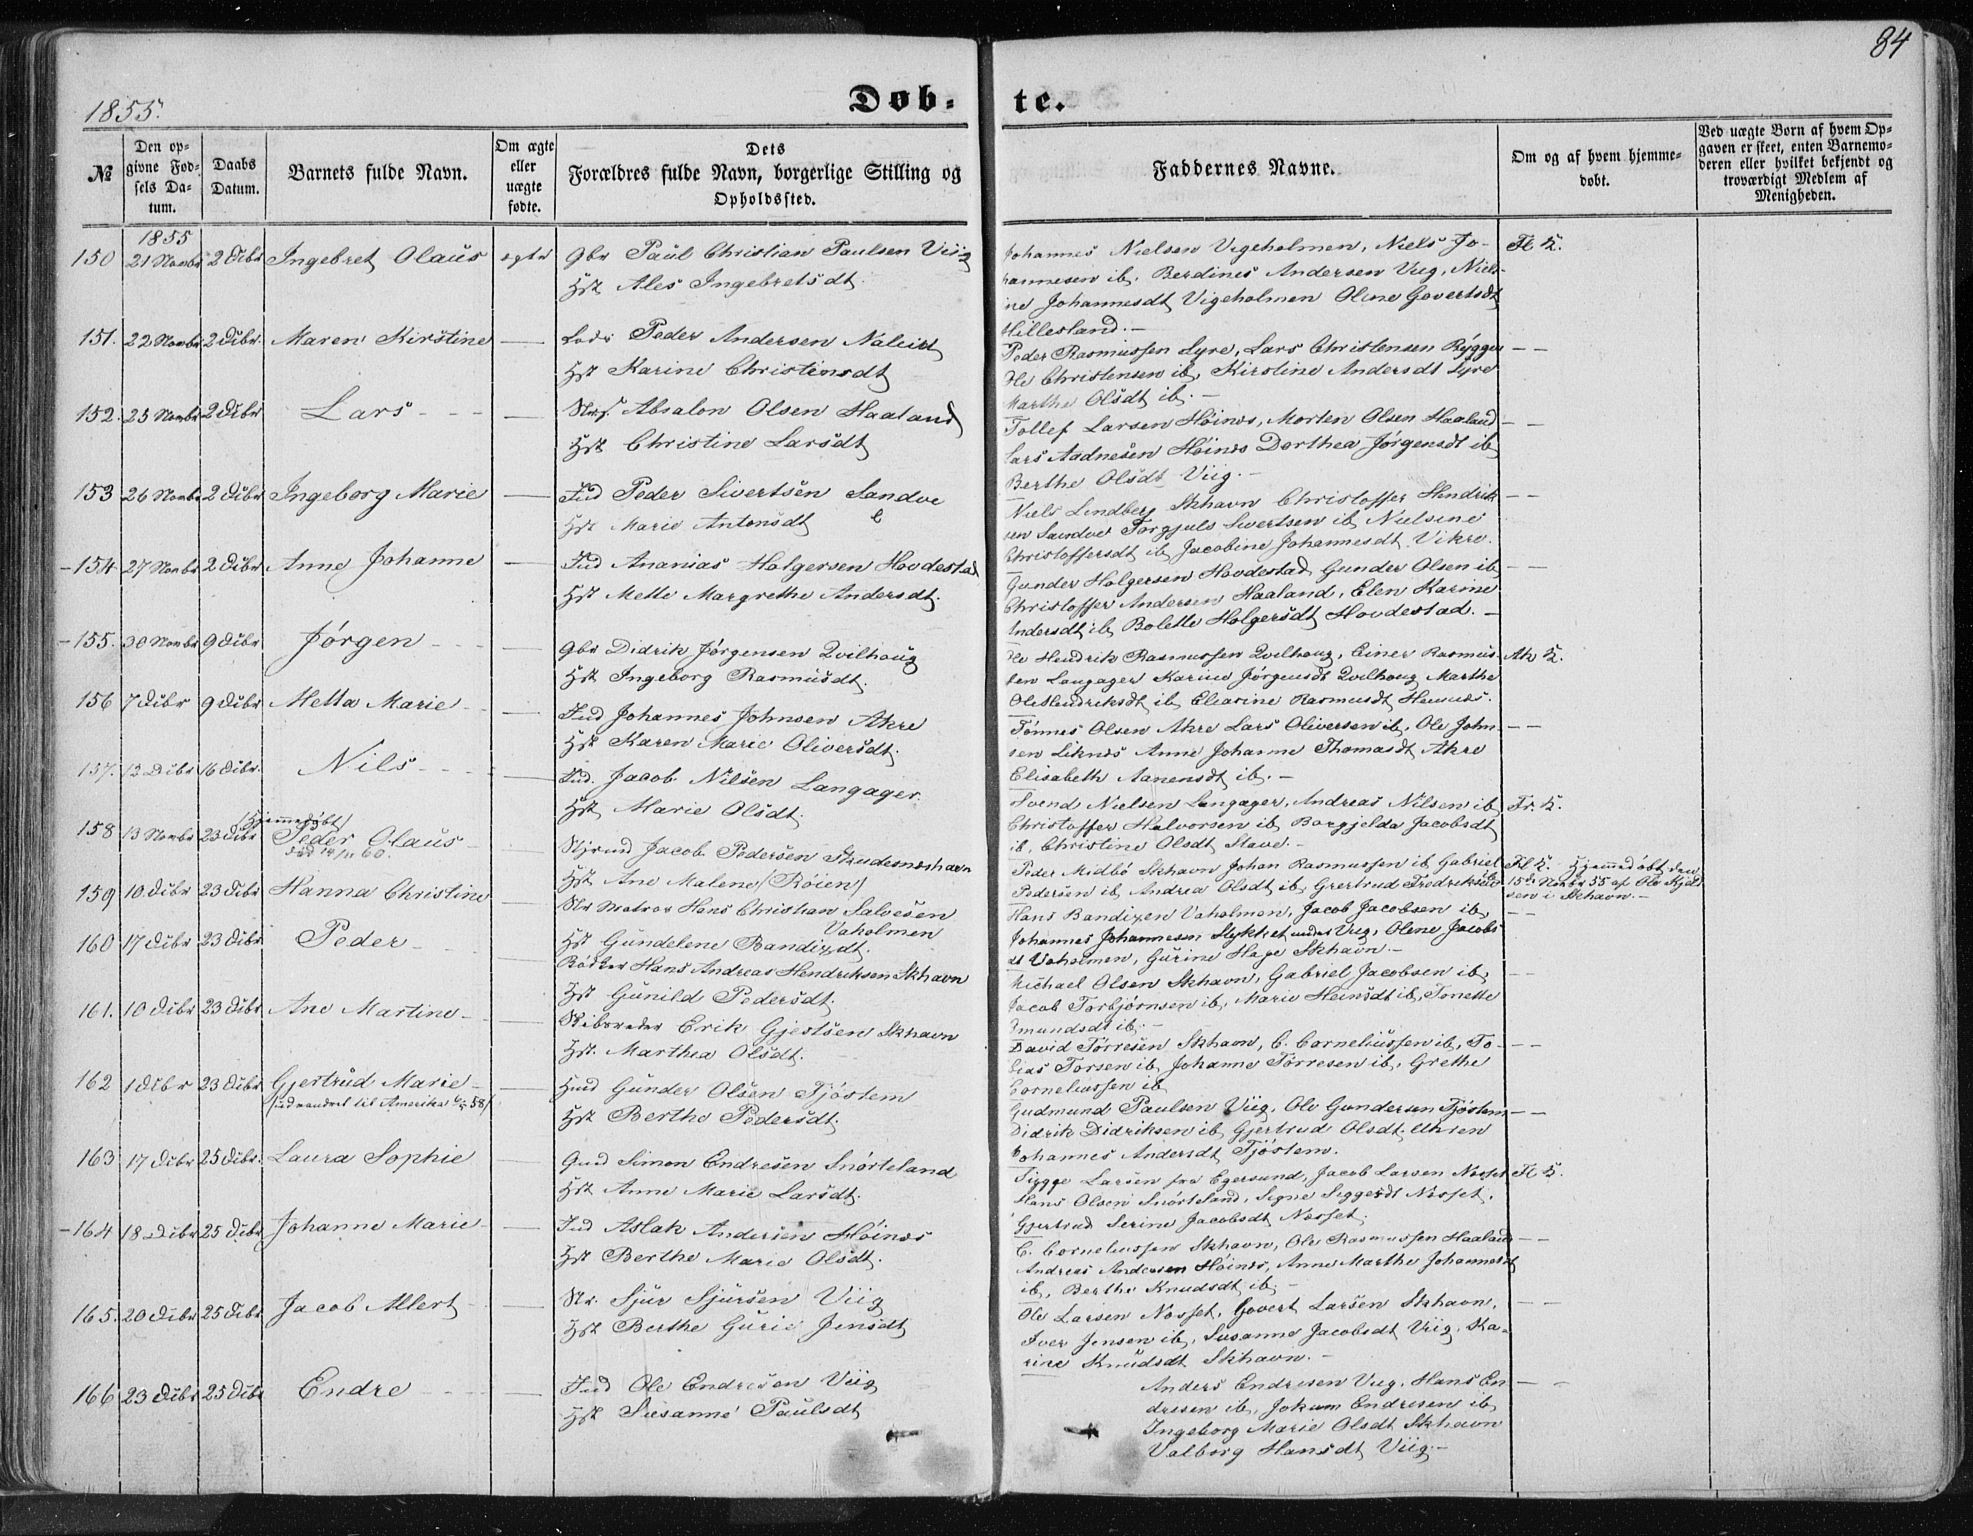 84
1855.
Døb-
te.
№
Den op-
givne Fød-
sels Da-
tum.
Daabs
Datum.
Barnets fulde Navn.
Om ægte
eller
uægte
fødte.
Dets
Forældres fulde Navn, borgerlige Stilling og
Opholdssted.
Faddernes Navne.
Om og af hvem hjemme-
døbt.
Ved uægte Børn af hvem Op-
gaven er skeet, enten Barnemo-
deren eller hvilket bekjendt og
troværdigt Medlem af
Menigheden.
1855
150 21 Novbr 2 Dcbr Ingebret Olaus ægte Gbr Paul Christian Paulsen Viig
Hst Ales Ingebretsdt.
Johannes Nielsen Vigeholmen, Niels Jo-
hannesen ib, Berdines Andersen Viig, Niels-
ine Johannesdt Vigeholmen Olene Govertsdt
Hillesland. –
Fl K.
151. 22 Novbr 2 Dcbr. Maren Kirstine — Peder Andersen
Hst Karine Christensdt
Peder Rasmussen Lyre, Lars Christensen Rygge
Ole Christensen ib, Kirstine Andersdt Lyre
Marthe Olsdt ib. –
— —
152. 25 Novbr 2 Dcbr Lars — Absalon Olsen Haaland
Hst Christine Larsdt
Tollef Larsen Høines, Morten Olsen Haaland
Lars Aadnesen Høines Dorthea Jørgensdt ib
Berthe Olsdt Viig. –
— —
153 26 Novbr 2 Dcbr Ingeborg Marie — Ind Peder Sivertsen Sandve
Hst Marie Antonsdt
Niels Lindberg Skhavn Christoffer Hendrik-
sen Sandve Torgjuls Sivertsen ib Nielsine
Christoffersdt ib Jacobine Johannesdt Vikre.
— —
-154 27 Novbr 2 Dcbr Anne Johanne — Ind Ananias Holgersen Hovdestad
Hst Mette Margrethe Andersdt.
Gunder Holgersen Hovdestad Gunder Olsen ib
Christoffer Andersen Haaland, Elen Karine
Andersdt ib, Bolette Holgersdt Hovdestad. –
— —
-155. 30 Novbr 9 Dcbr Jørgen — Gbr Didrik Jørgensen Qvilhoug
Hst Ingeborg Rasmusdt.
Ole Hendrik Rasmussen Qvilhoug, Einer Rasmus-
sen Langager Karine Jørgensdt Qvilhoug Marthe
Ole Hendriksdt ib Elearine Rasmusdt
Ak K.
156 7 Dcbr 9 Dcbr Metta Marie — Ind Johannes Johnsen Akre
Hst Karen Marie Oliversdt.
Tønnes Olsen Akre Lars Oliversen ib, Ole John-
sen Liknes Anne Johanne Thomasdt Akre
Elisabeth Aanensdt ib. –
— —
157. 13 Dcbr 16 Dcbr. Nils — Ind. Jacob Nilsen Langager.
Hst Marie Olsdt.
Svend Nielsen Langager, Andreas Nilsen ib
Christoffer Halvorsen ib Borgjelda Jacobsdt
ib, Christine Olsdt Stave. –
Fr. K.
(Hjemmedøbt)
158 13 Novbr 23 Dcbr Peder Olaus — Styrmd Jacob Pedersen Skudesneshavn
død 14/11 60.
Hst Ane Malene (Røien)
Peder Midbø Skhavn Johan Rasmussen ib Gabriel
Pedersen ib, Andrea Olsdt ib, Grertrud
Fl K. Hjemmedøbt den
15de Novbr 55 af Ole Kjeld-
sen i Skhavn. –
159 10 Dcbr 23 Dcbr Hanna Christine — Matros Hans Christian Salvesen
Vaholmen
Hst Gundelene Bandizdt.
Hans Bandizen Vaholmen, Jacob Jacobsen ib,
Johannes Johannesen Stykket under Viig, Olene Jacobs-
dt Vaholmen, Gurine Hage Skhavn. –
— —
160 17 Dcbr 23 Dcbr Peder — Bødker Hans Andreas Hendriksen Skhavn
Hst Gunild Pedersdt.
Michael Olsen Skhavn, Gabriel Jacobsen ib,
Jacob Torbjørnsen ib, Marie Heinsdt ib, Tonette
Amundsdt ib. –
— —
161. 10 Dcbr 23 Dcbr Ane Martine — Skibsreder Erik Gjestsen Skhavn
Hst. Marthea Olsdt.
David Tørresen Skhavn, C. Corneliussen ib, To-
bias Torsen ib, Johanne Tørresen ib, Grethe
Corneliussen ib
— —
162 1 Dcbr 23 Dcbr Gjertrud Marie — Gunder Olsen Tjøstem
(udvandret til Amerika 58)
Hst Berthe Pedersdt.
Gudmund Paulsen Viig, Ole Gundersen Tjøstem
Didrik Didriksen ib Gjertrud Olsdt
Johannes Andersdt Tjøstem.
— —
163 17 Dcbr 25 Dcbr. Laura Sophie — Gmd Simon Endresen Snørteland
Hst Anne Marie Larsdt.
Sigge Larsen fra Egersund, Jacob Larsen Nesset
Hans Olsen Snørteland, Signe Siggesdt Nesset,
Gjertrud Serine Jacobsdt Nesset.
Fl K.
-164 18 Dcbr 25 Dcbr Johanne Marie — Ind Aslak Andersen Høines
Hst Berthe Marie Olsdt.
C. Corneliussen Skhavn, Ole Rasmussen Haaland
Andreas Andersen Høines, Anne Marthe Johannesdt
ib, Berthe Knudsdt ib. –
— —
165. 20 Dcbr 25 Dcbr Jacob Allert — Sjur Sjursen Viig
Hst Berthe Gurie Jensdt
Ole Larsen Nesset, Govert Larsen Skhavn,
Iver Jensen ib, Susanne Jacobsdt Viig, Ka-
rine Knudsdt Skhavn. –
— —
166 23 Dcbr 25 Dcbr Endre — Ind Ole Endresen Viig
Hst Susanne Paulsdt
Anders Endresen Viig, Hans En-
dresen ib, Jokum Endresen ib
Ingeborg Marie Olsdt Skhavn
Valborg Hansdt Viig. –
— —